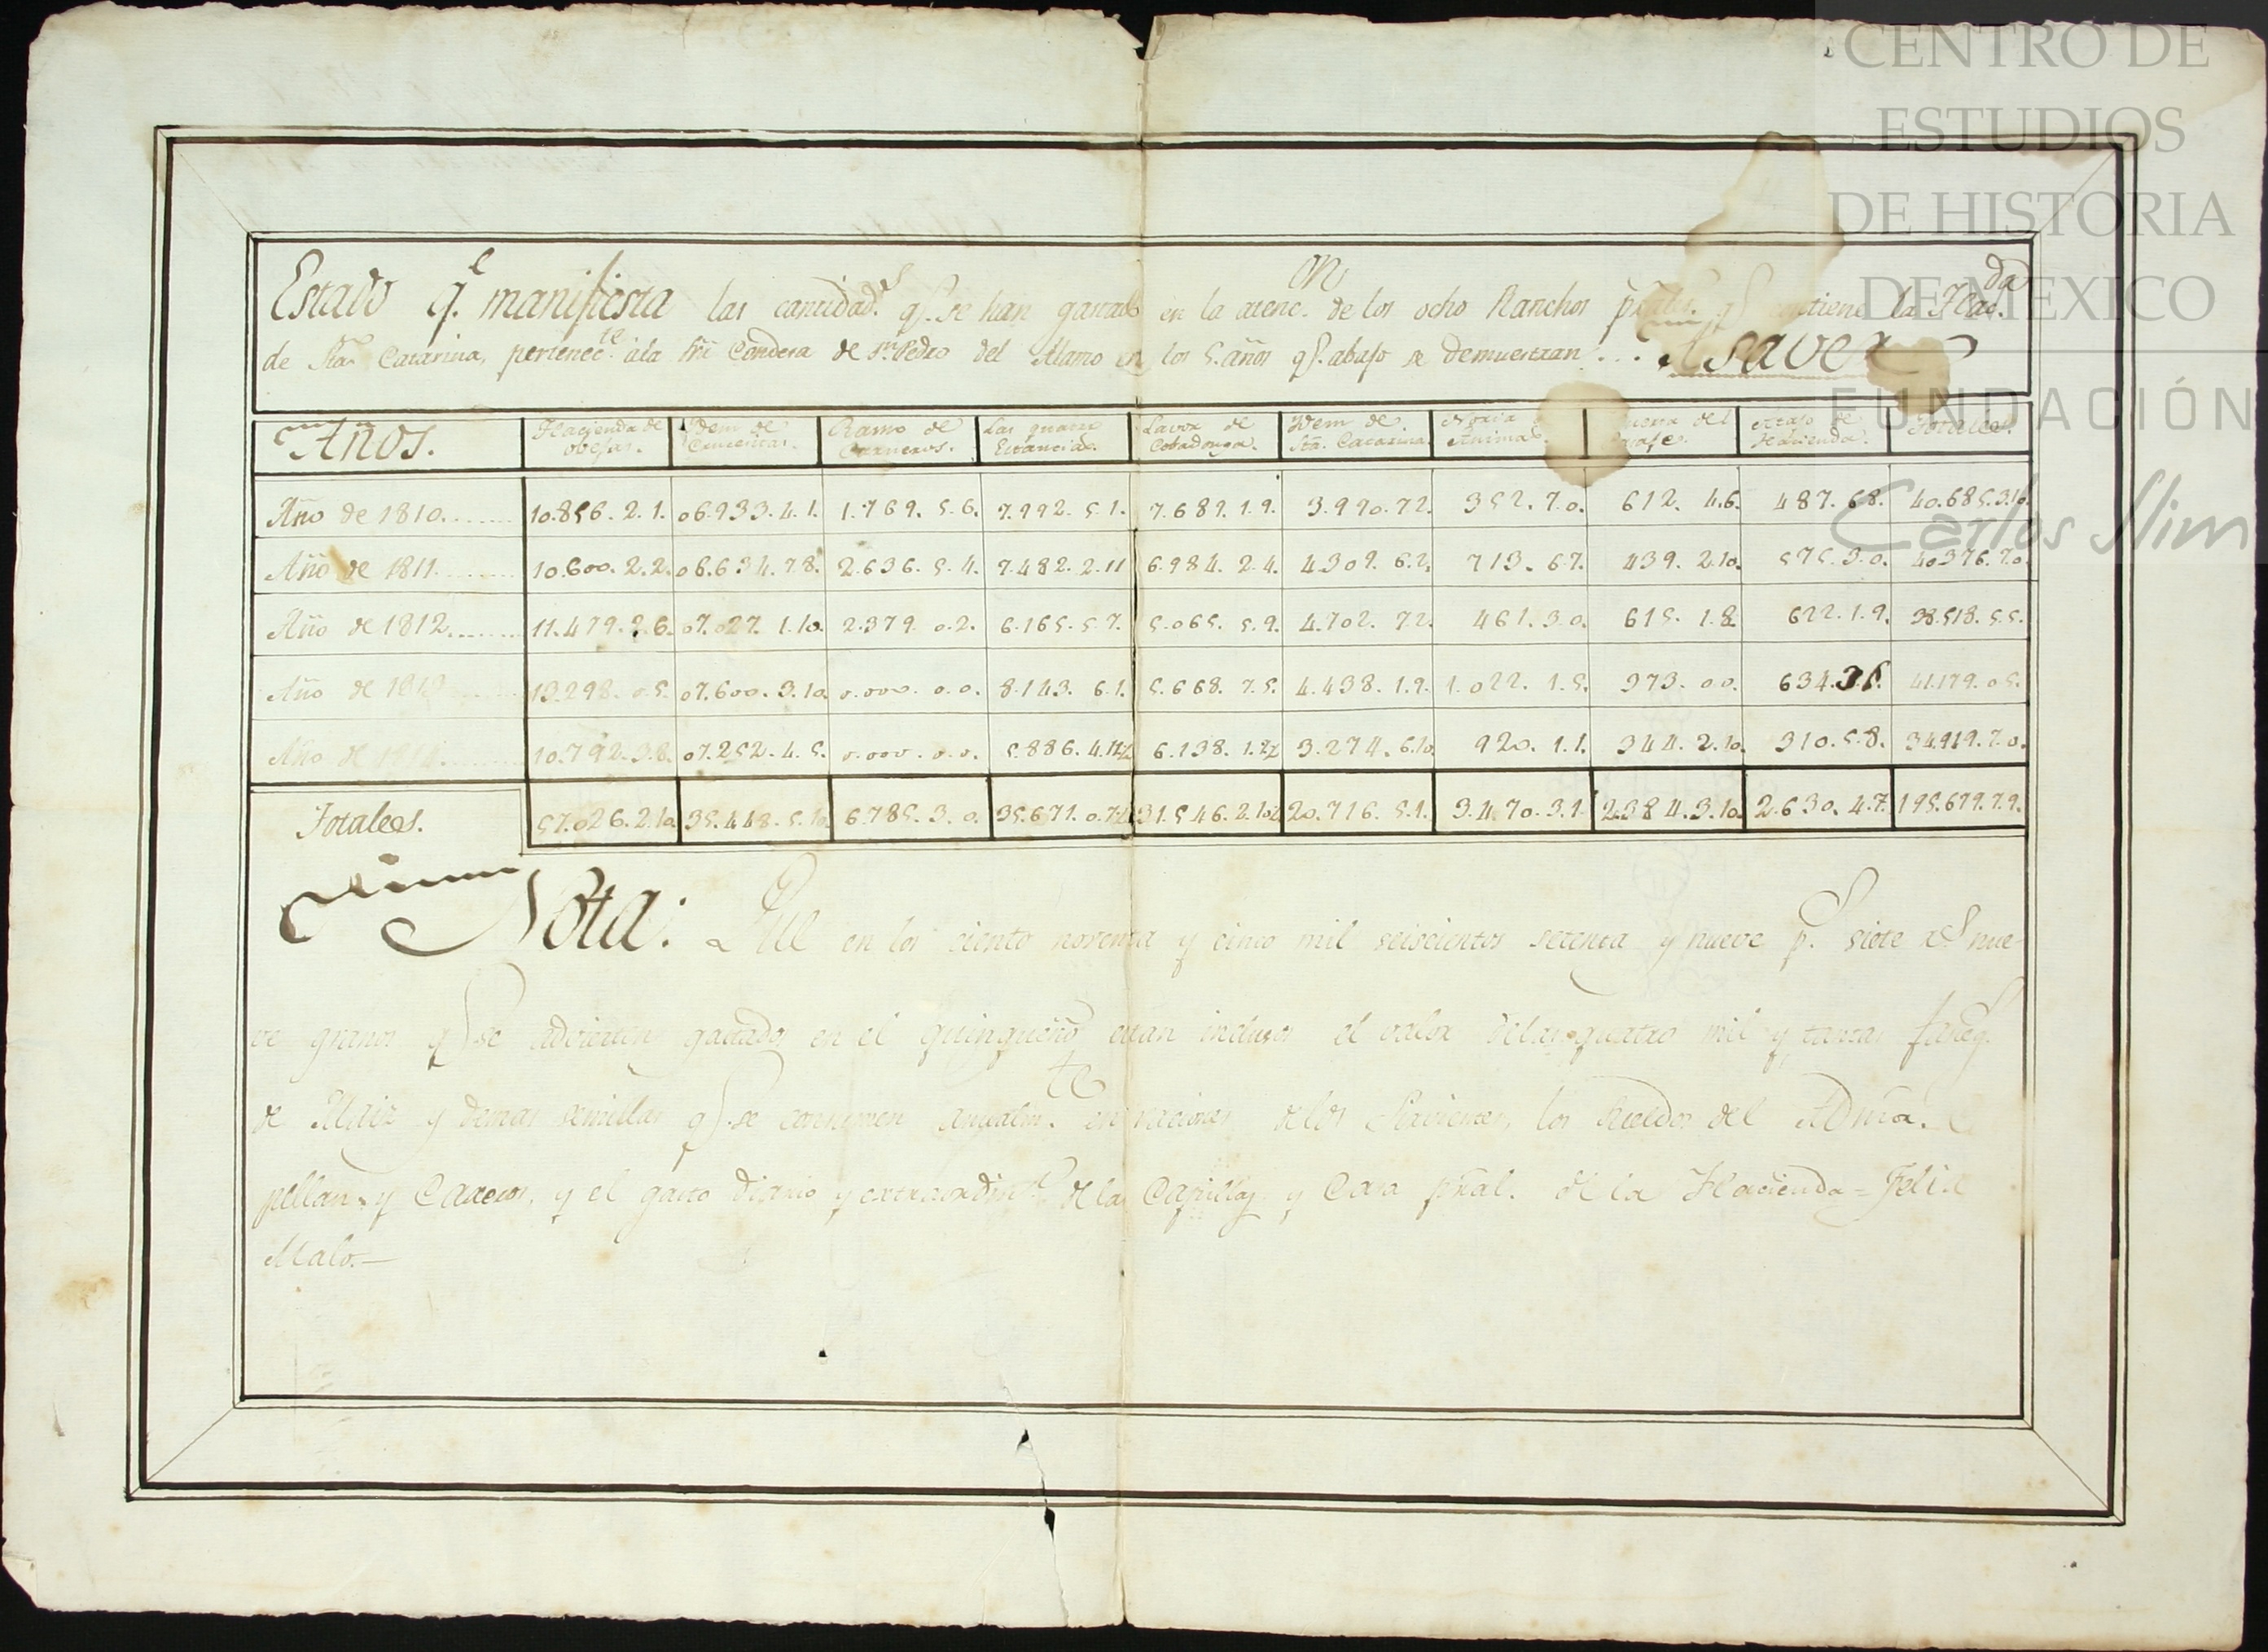 CENTRO DE
ESTUDIOS
DE HISTORIA
DE MÉXICO
FUNDACIÓN
Carlos Slim
Estado q.e manifiesta las cantidad.s q.e se han gastado en la atenc.on de los ocho Ranchos q.e contiene la Hac.da
de Sta. Catarina, pertenec.te á la Condesa de Sn. Pedro del Alamo en los 5. años q.e abajo se demuestran ... A saver
Años. Hacienda de obejas. Idem de Ramo de Carneros. Las quatro Estancias. Lavor de Cobadonga. Idem de Sta. Catarina. Noria Animas. del Atajo de Hacienda. Totales.
Año de 1810....... 10.856. 2. 1. 06.933. 4. 1. 1.769. 5. 6. 7.992. 5 1. 7.689. 1. 9. 3.990. 7 2. 352. 7. 0. 612. 4.6. 487. 6 8. 40.685. 3.10.
Año de 1811........ 10.600. 2. 2. 06.634. 7 8. 2.636. 5. 4. 7.482. 2. 11 6.984. 2 4. 4.309. 6. 2. 713. 6 7. 439. 2 10. 575. 3. 0. 40.376. 7. 0.
Año de 1812....... 11.479. 2. 6. 07.027. 1. 10. 2.379. 0. 2. 6.165. 5 7. 5.065. 5. 9. 4.702. 7 2. 461. 3 0. 615. 1. 8. 622. 1. 9. 38.518. 5. 5.
Año de 1813....... 13.298. 0. 5. 07.600. 3. 10. 0.000. 0. 0. 8.143. 6 1. 5.668. 7. 5. 4.438. 1. 9. 1.022. 1. 5. 373. 0 0. 634. 41.179. 0 5.
Año de 1814....... 10.792. 3. 8. 07.252. 4. 5. 0.000. 0. 0. 5.886. 4. 6.138. 1. 3.274. 6.10. 920. 1. 1. 344. 2. 10. 310. 5. 8. 34.919. 7. 0.
Totales. 57.026. 2. 10. 35.448. 5. 10. 6.785. 3. 0. 35.671. 0. 31.546. 2. 20.716. 5. 1. 3.470. 3. 1. 2.384. 3. 10. 2.630. 4. 7. 195.679. 7. 9.
Nota: Que en los ciento noventa y cinco mil seiscientos setenta y nueve p.s siete r.s nue-
ve granos q.e se advierten gastados en el quinqueño estan inclusos el valor de las quatro mil y tantas faneg.s
de Maiz y demas semillas q.e se consumen anualm.te en raciones de los Sirvientes, los sueldos del Admor.
pellan y y el gasto diario y extraordin.o de la Capilla y Casa pral. de la Hacienda = Felix
Malo.—